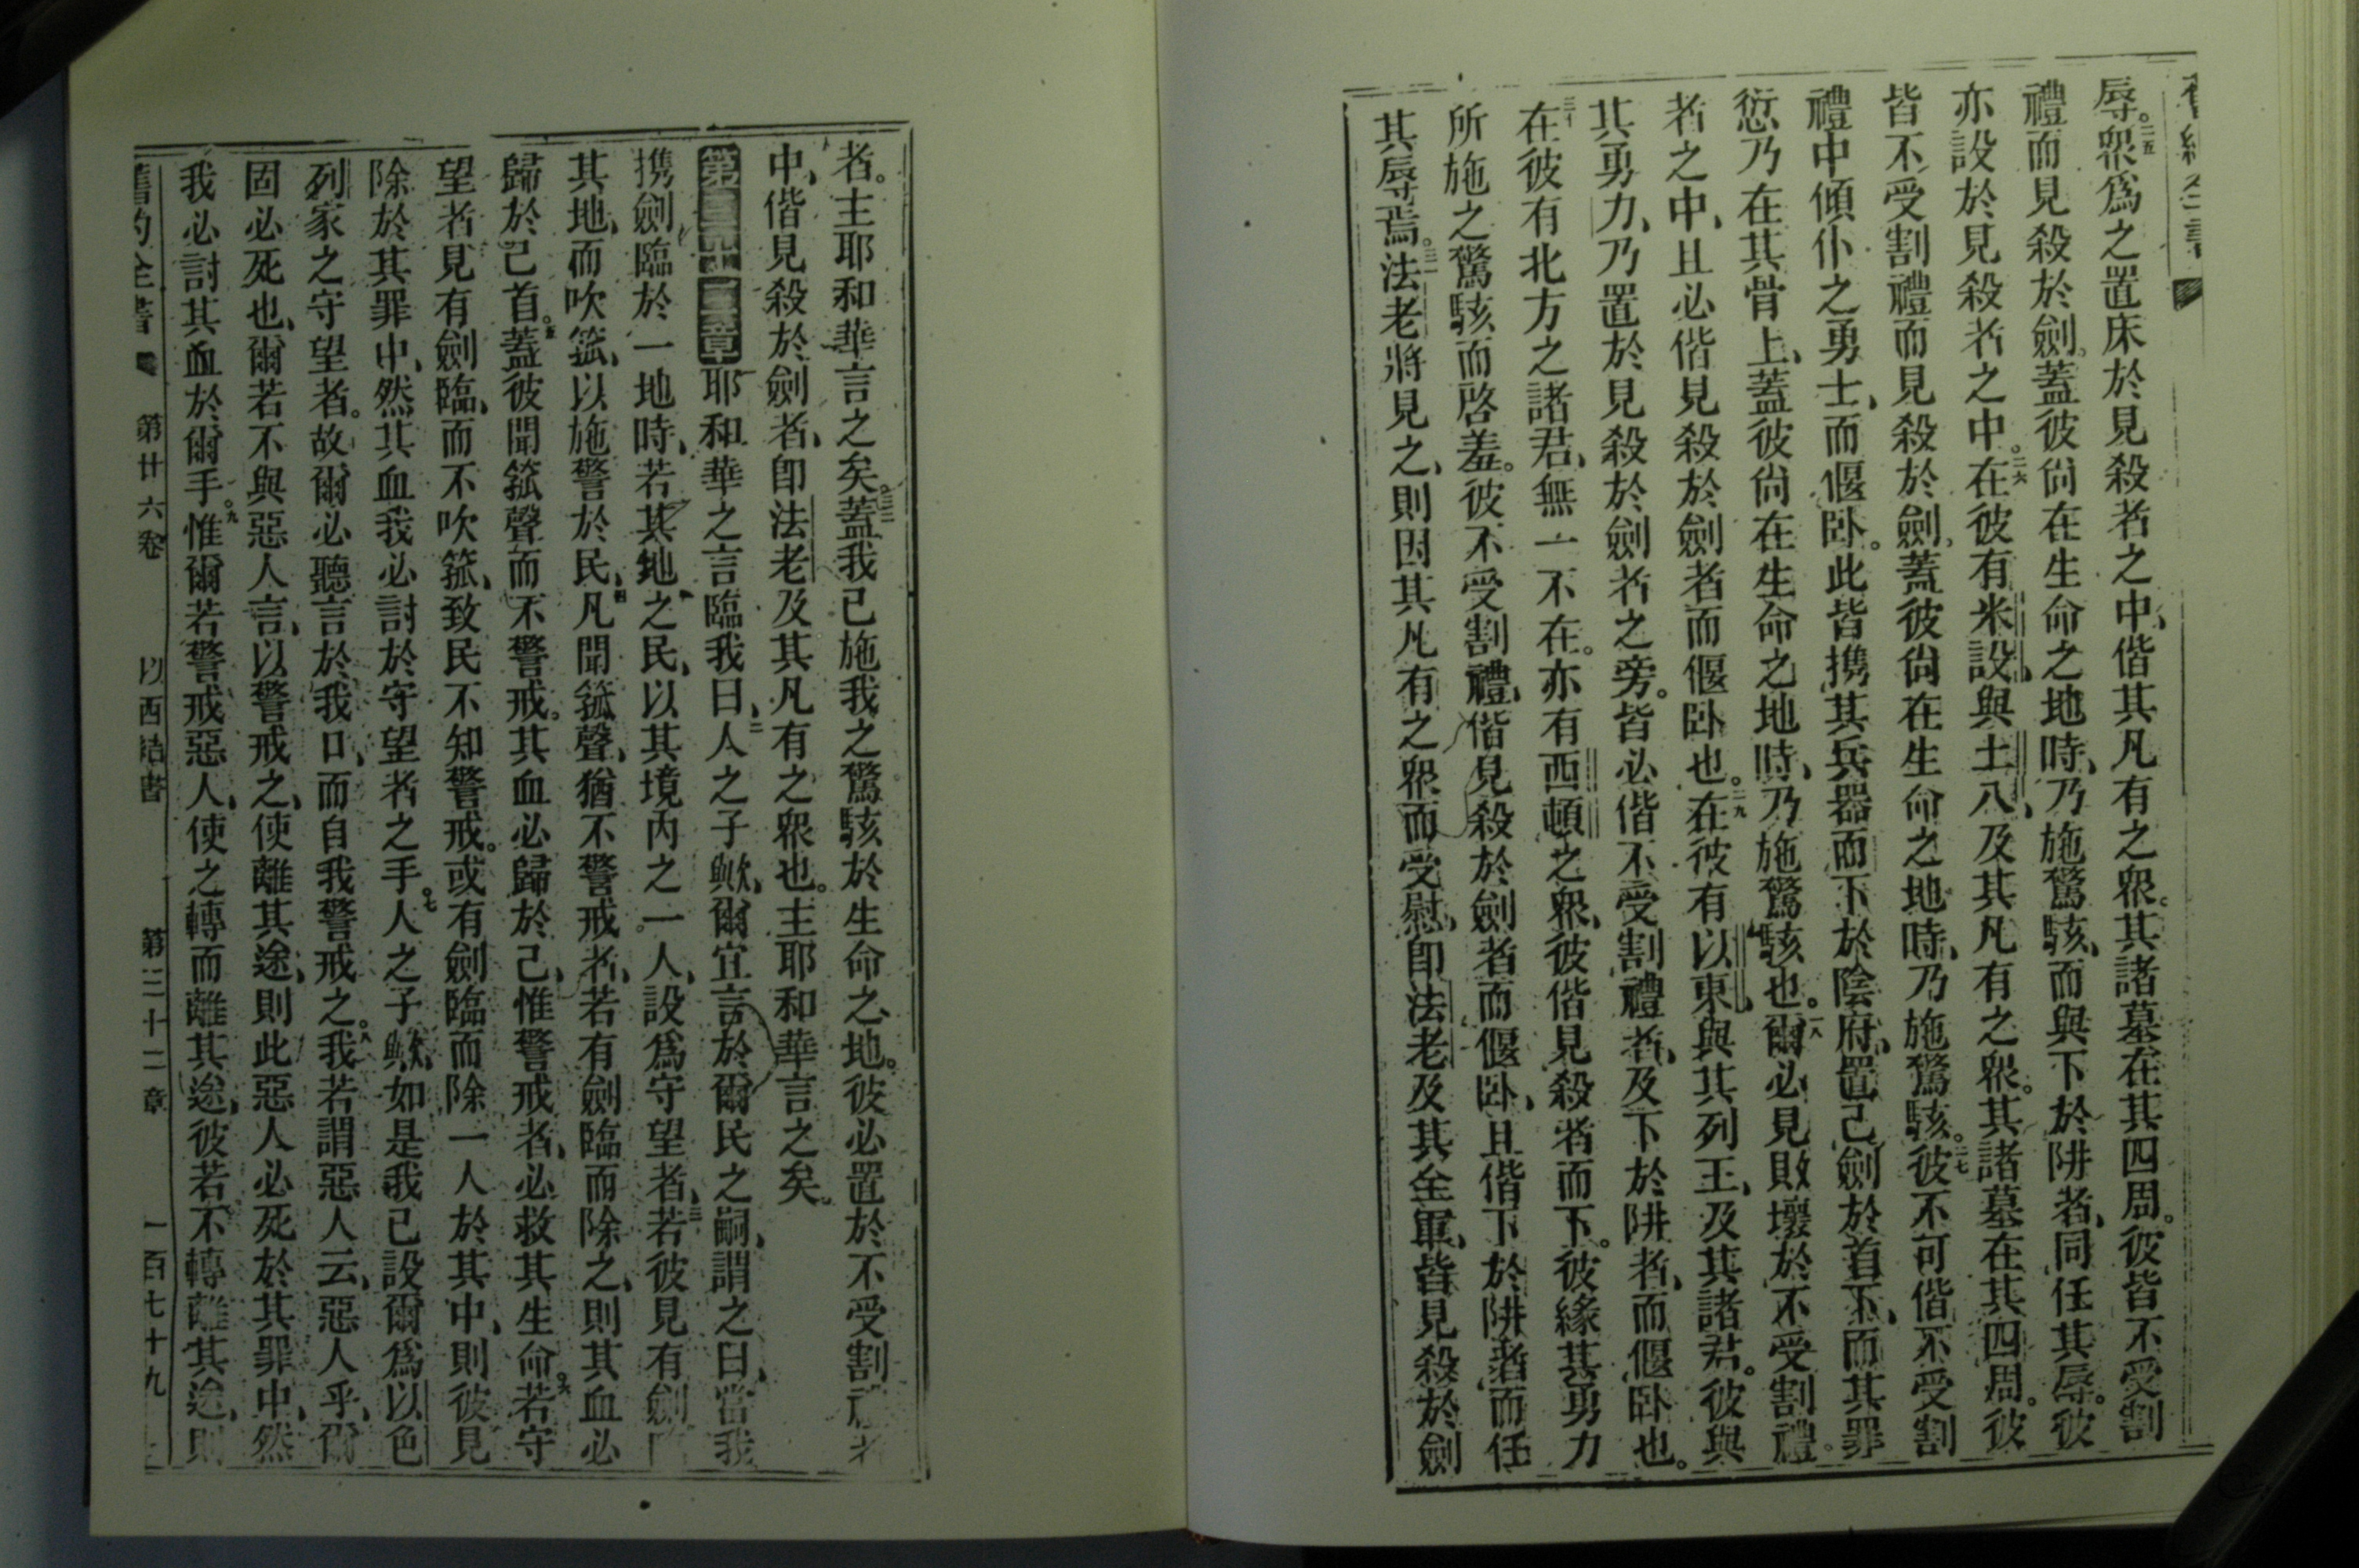 辱。二五衆爲之置床於見殺者之中、偕其凡有之衆。其諸墓在其四周。彼皆不受割
禮而見殺於劍。蓋彼尙在生命之地時、乃施驚駭、而與下於阱者、同任其辱。彼
亦設於見殺者之中。二六在彼有米設、與土八、及其凡有之衆。其諸墓在其四周。彼
皆不受割禮而見殺於劍。蓋彼尙在生命之地時、乃施驚駭。二七彼不可偕不受割
禮中傾仆之勇士、而偃卧。此皆携其兵器而下於陰府、置己劍於首下、而其罪
愆乃在其骨上、蓋彼尙在生命之地時、乃施驚駭也。二八爾必見敗壞於不受割禮
者之中、且必偕見殺於劍者而偃卧也。二九在彼有以東、與其列王、及其諸君。彼與
其勇力、乃置於見殺於劍者之旁。皆必偕不受割禮者、及下於阱者、而偃卧也。
三十在彼有北方之諸君、無一不在。亦有西頓之衆、彼偕見殺者而下。彼緣其勇力
所施之驚駭而啓羞。彼不受割禮、偕見殺於劍者而偃卧、且偕下於阱者而任
其辱焉。三一法老將見之、則因其凡有之衆而受慰、卽法老及其全軍、皆見殺於劍
者。主耶和華言之矣。三二蓋我已施我之驚駭於生命之地。彼必置於不受割禮者
中、偕見殺於劍者、卽法老及其凡有之衆也。主耶和華言之矣。
第三十三章耶和華之言臨我曰、二人之子歟、爾宜言於爾民之嗣、謂之曰、當我
携劍臨於一地時、若其地之民、以其境內之一人、設爲守望者、三若彼見有劍
其地、而吹箛、以施警於民、四凡聞箛聲、猶不警戒者、若有劍臨而除之、則其血必
歸於己首。五蓋彼聞箛聲而不警戒。其血必歸於己、惟警戒者、必救其生命。六若守
望者見有劍臨、而不吹箛、致民不知警戒。或有劍臨而除一人於其中、則彼見
除於其罪中、然其血我必討於守望者之手。七人之子歟、如是我已設爾爲以色
列家之守望者。故爾必聽言於我口、而自我警戒之。八我若謂惡人云、惡人乎、爾
固必死也、爾若不與惡人言、以警戒之、使離其途、則此惡人必死於其罪中、然
我必討其血於爾手。九惟爾若警戒惡人、使之轉而離其途、彼若不轉離其途、則
舊約全書 第廿六卷 以西結書 第三十二章 一百七十九